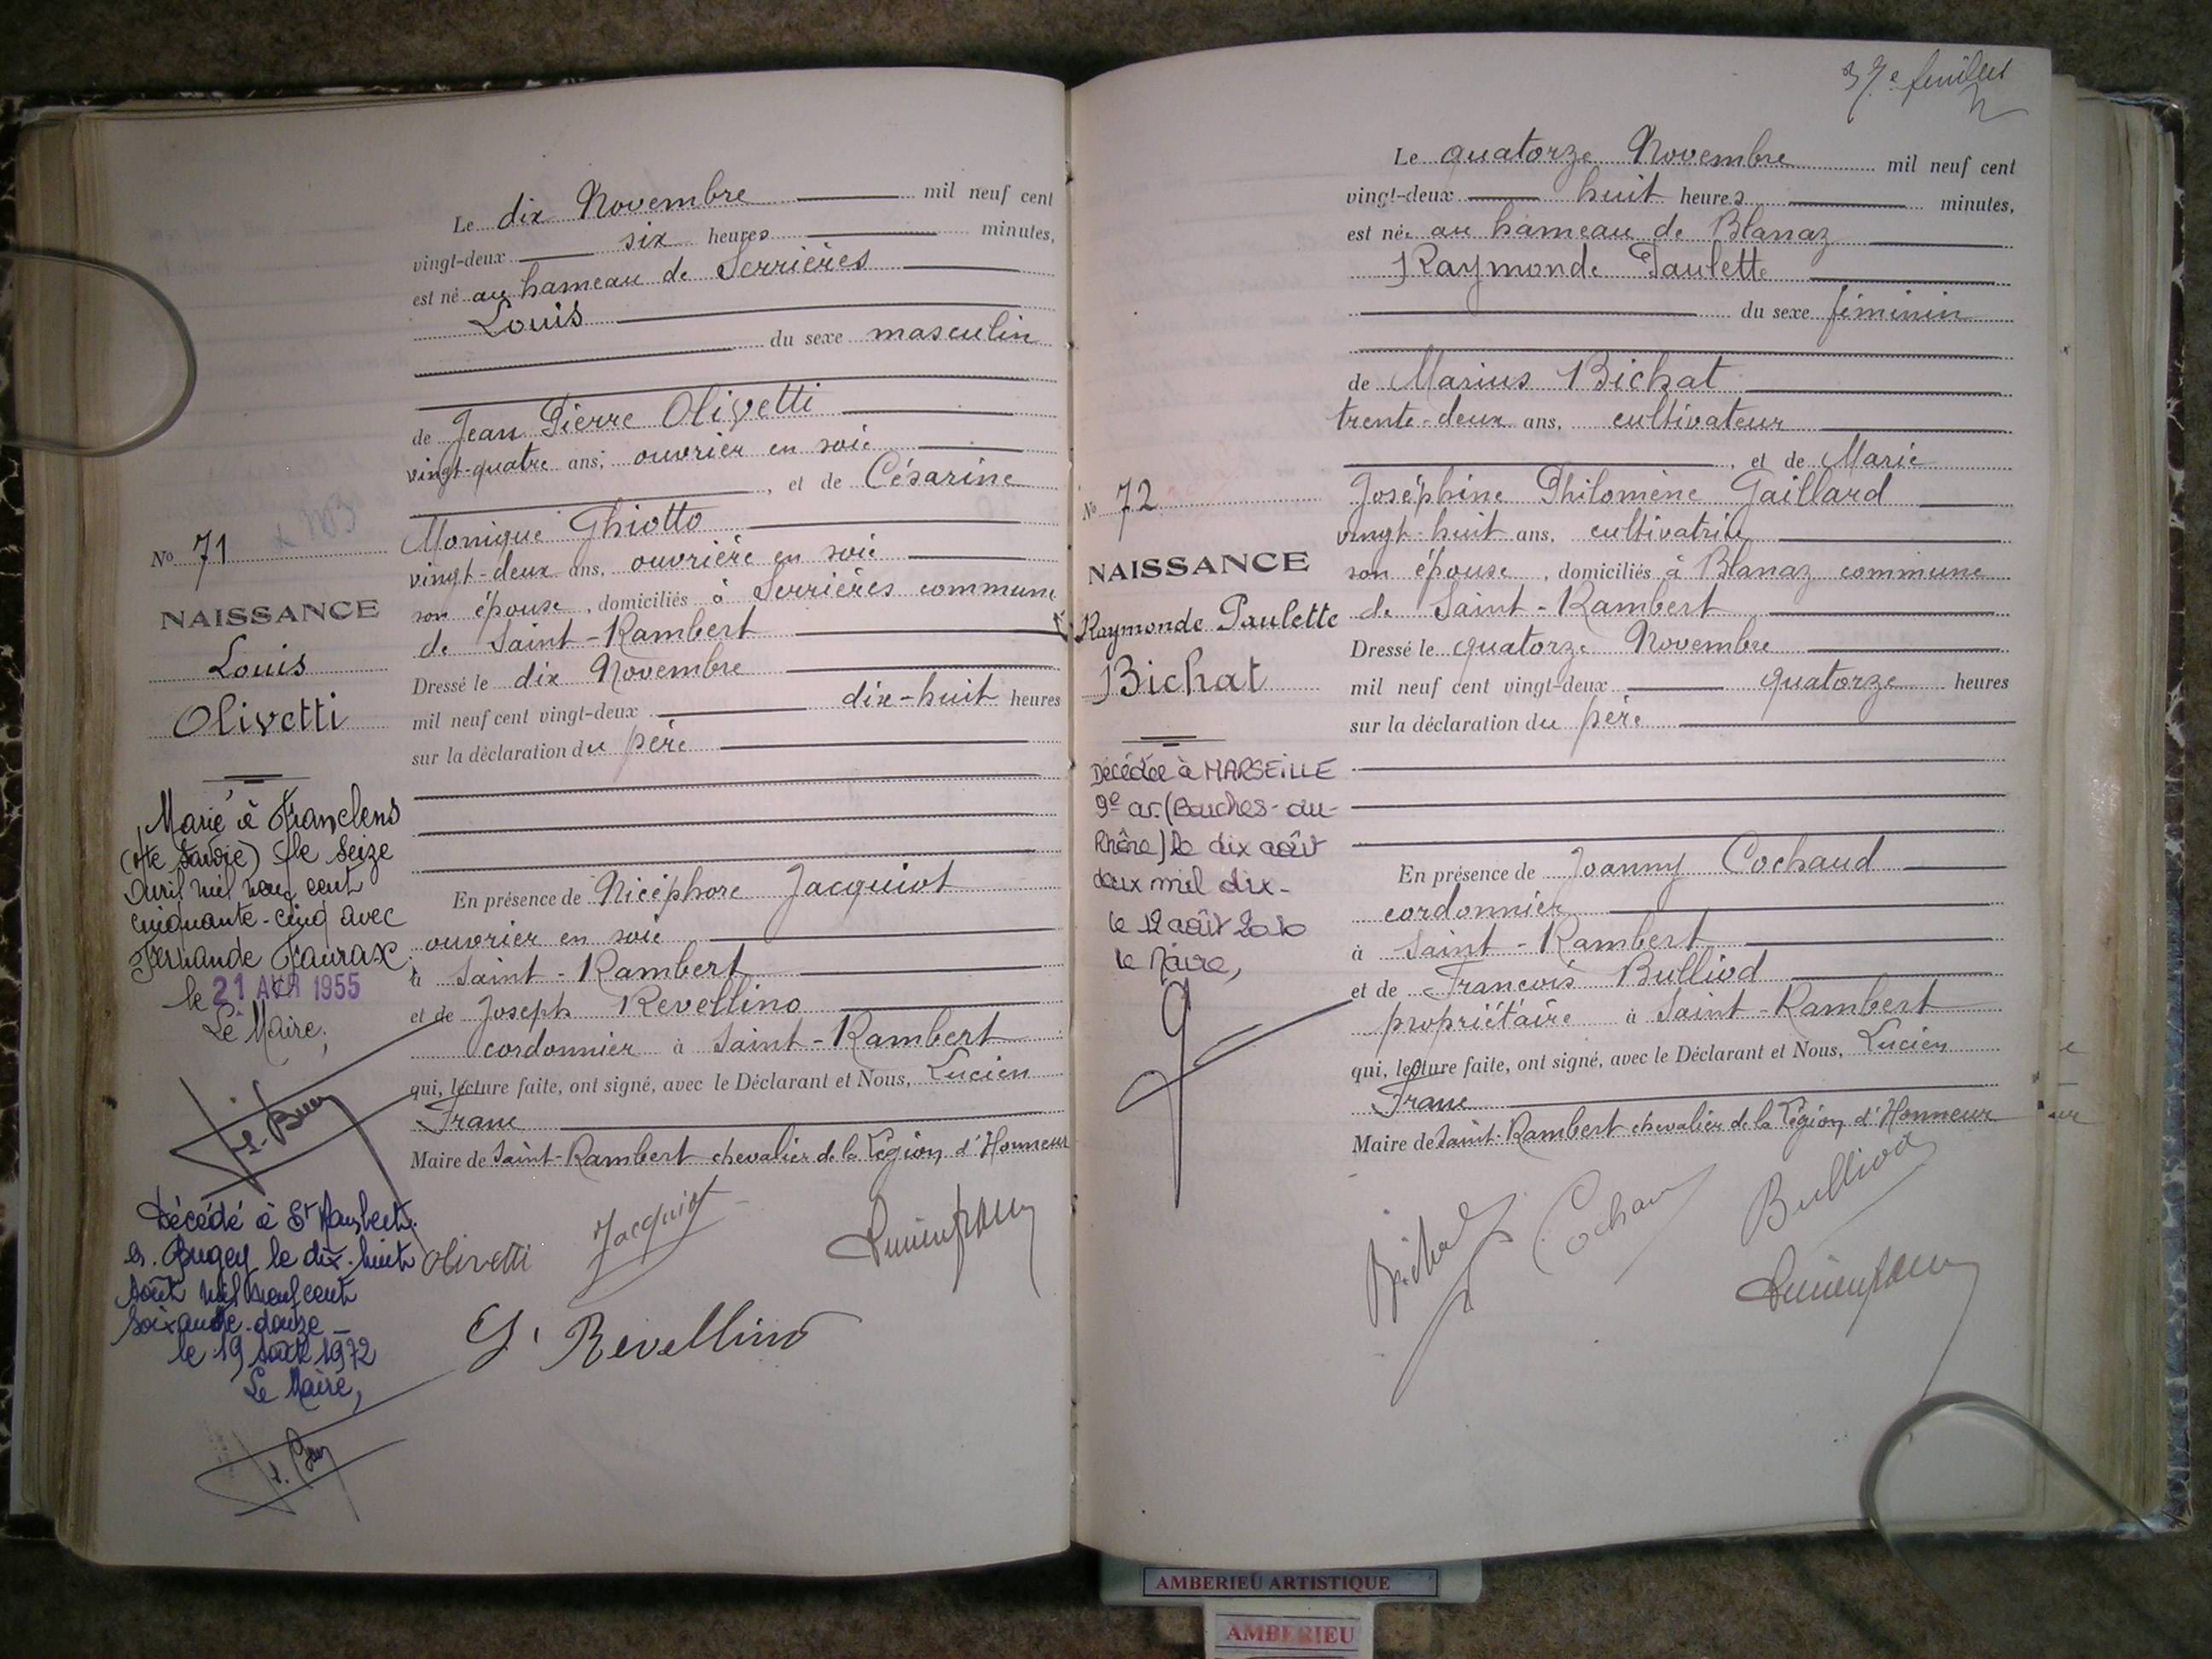 Le dix Novembre mil neuf cent
vingt-deux six heures minutes,
est né au hameau de Serrières
Louis
du sexe masculin
de Jean Pierre Olivetti
vingt-quatre ans, ouvrier en soie
, et de Césarine
Monique Ghiotto
vingt-deux ans, ouvrière en soie
son épouse, domiciliés à Serrières commune
de Saint-Rambert
Dressé le dix Novembre
mil neuf cent vingt-deux dix-huit heures
sur la déclaration du père
En présence de Nicéphore Jacquiot
ouvrier en soie
à Saint-Rambert
et de Joseph Revellino
cordonnier à Saint-Rambert
qui, lecture faite, ont signé, avec le Déclarant et Nous, Lucien
Franc
Maire de Saint-Rambert chevalier de la Légion d'Honneur
Olivetti Jacquiot Lucien Franc
J. Revellino
No 71
NAISSANCE
Louis
Olivetti
Marié à Franclens
(Hte Savoie) le seize
avril mil neuf cent
cinquante-cinq avec
Fernande Faurax
le 21 AVR 1955
Le Maire,
Décédé à St Rambert
en Bugey le dix-huit
août mil neuf cent
soixante-douze
le 19 août 1972
Le Maire,
37e feuillet
Le quatorze Novembre mil neuf cent
vingt-deux huit heures minutes,
est née au hameau de Blanaz
Raymonde Paulette
du sexe féminin
de Marius Bichat
trente-deux ans, cultivateur
, et de Marie
Joséphine Philomène Gaillard
vingt-huit ans, cultivatrice
son épouse, domiciliés à Blanaz commune
de Saint-Rambert
Dressé le quatorze Novembre
mil neuf cent vingt-deux quatorze heures
sur la déclaration du père
En présence de Joanny Cochaud
cordonnier
à Saint-Rambert
et de François Bulliod
propriétaire à Saint-Rambert
qui, lecture faite, ont signé, avec le Déclarant et Nous, Lucien
Franc
Maire de Saint-Rambert chevalier de la Légion d'Honneur
Bichat Cochaud Bulliod
Lucien Franc
No 72
NAISSANCE
Raymonde Paulette
Bichat
Décédée à MARSEILLE
9e ar. (Bouches-du-
Rhône) le dix août
deux mil dix-
le 12 août 2010
le Maire,
AMBERIEU ARTISTIQUE
AMBERIEU